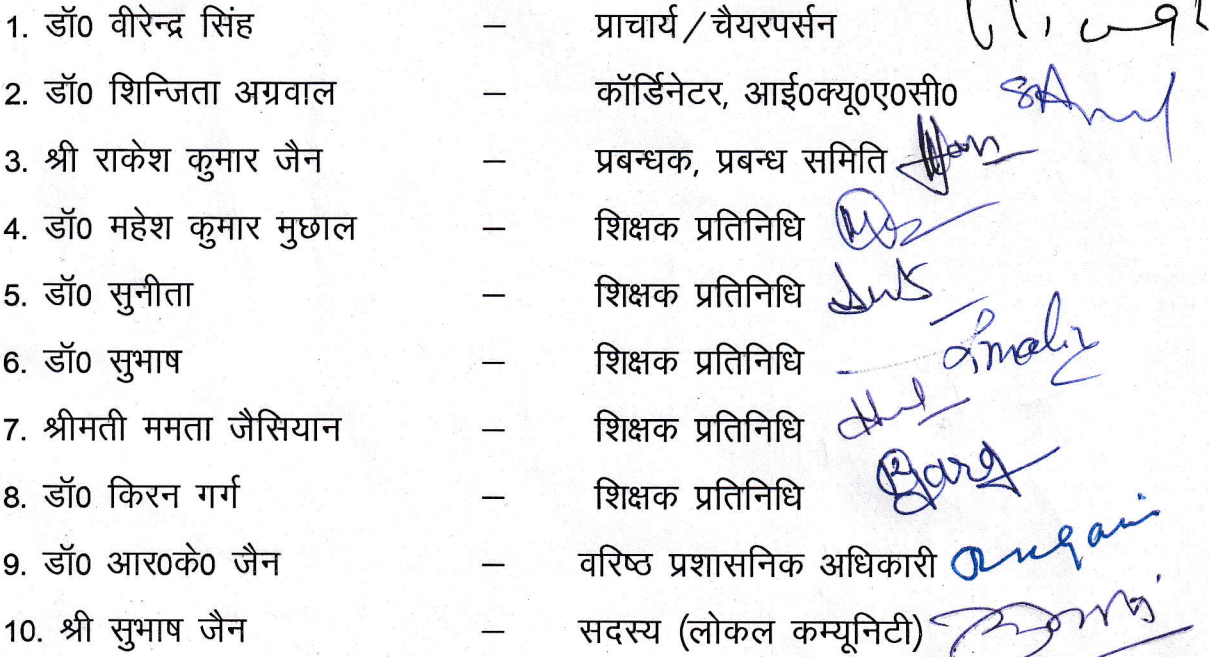 1. डॉ0 वीरेन्द्र सिंह – प्राचार्य/चैयरपर्सन
2. डॉ0 शिन्जिता अग्रवाल – कॉर्डिनेटर, आई0क्यू0ए0सी0
3. श्री राकेश कुमार जैन – प्रबन्धक, प्रबन्ध समिति
4. डॉ0 महेश कुमार मुछाल – शिक्षक प्रतिनिधि
5. डॉ0 सुनीता – शिक्षक प्रतिनिधि
6. डॉ0 सुभाष – शिक्षक प्रतिनिधि
7. श्रीमती ममता जैसियान – शिक्षक प्रतिनिधि
8. डॉ0 किरन गर्ग – शिक्षक प्रतिनिधि Garg
9. डॉ0 आर0के0 जैन – वरिष्ठ प्रशासनिक अधिकारी
10. श्री सुभाष जैन – सदस्य (लोकल कम्यूनिटी)